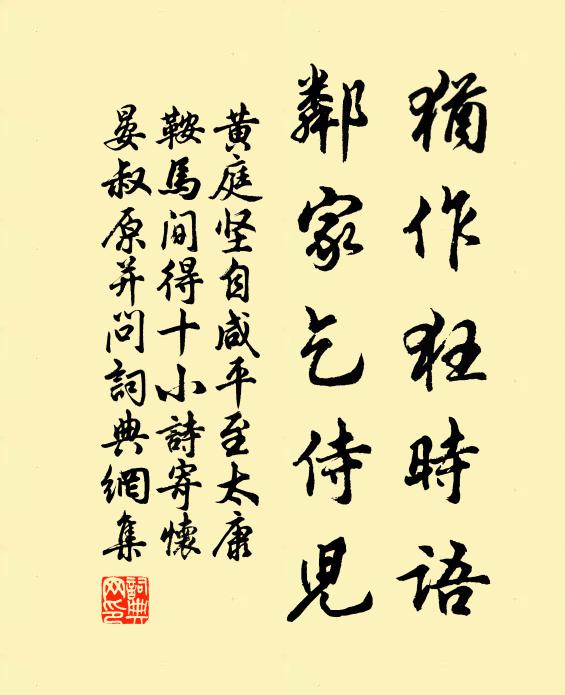 猶作狂時語
鄰家乞侍児
黄庭坚自咸平至太康
鞍馬间得十小詩寄懷
晏叔原并问詞典網集
詞典网印